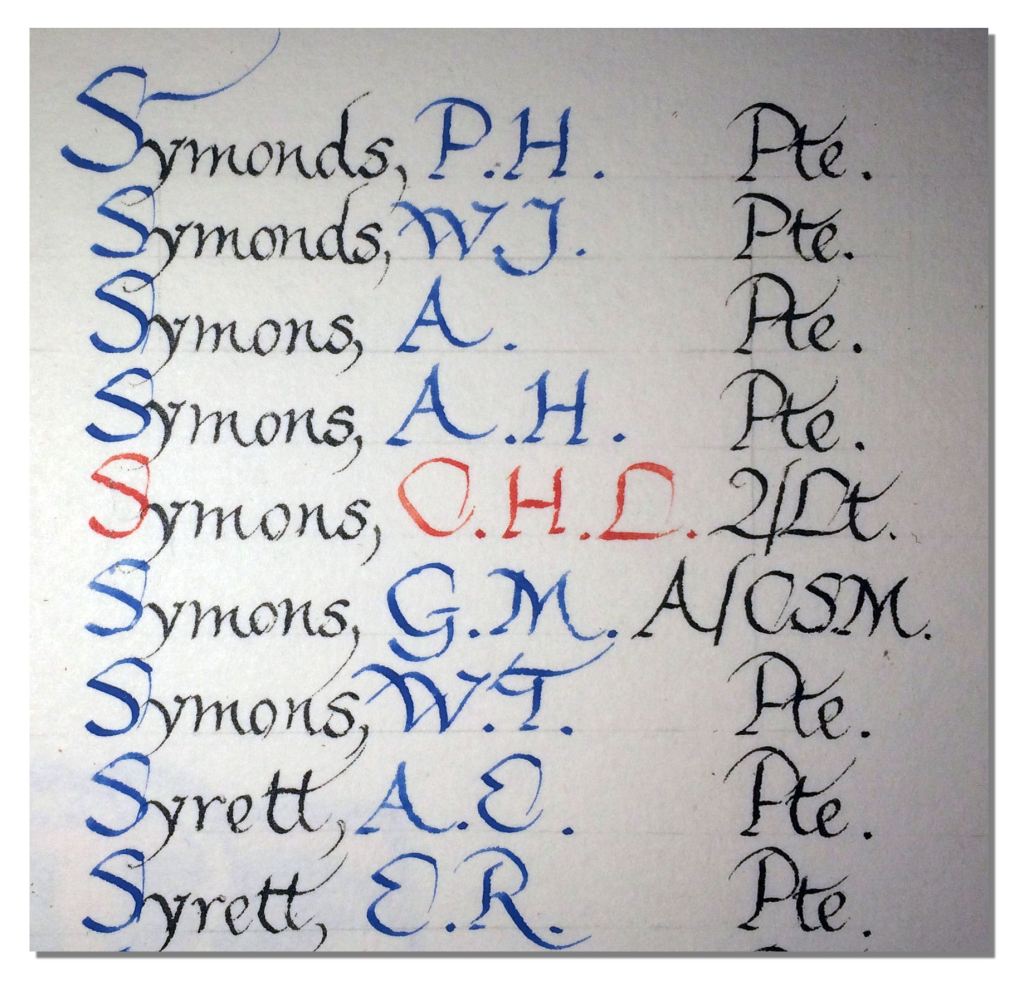 Symonds, P.H. Pte.
Symonds, W.J. Pte.
Symons, A. Pte.
Symons, A.H. Pte.
Symons, C.H.L. 2/Lt.
Symons, G.M. A/CSM.
Symons, W.T. Pte.
Syrett, A.E. Pte.
Syrett, E.R. Pte.